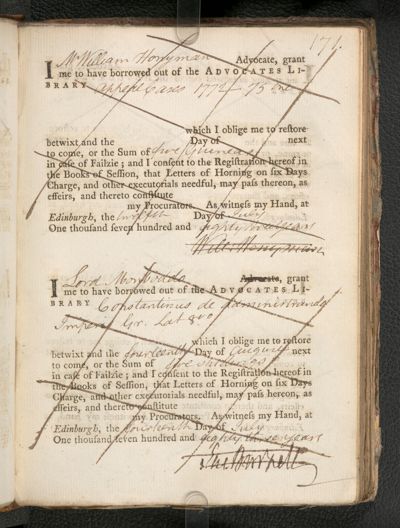 171.
I Mr William Honyman Advocate, grant
me to have borrowed out of the ADVOCATES LI-
BRARY appeal Cases 1774-75 
which I oblige me to restore
betwixt and the Day of next
to come, or the Sum of five Guineas
in case of Failzie; and I consent to the Registration hereof in
the Books of Session, that Letters of Horning on six Days
Charge, and other executorials needful, may pass thereon, as
effeirs, and thereto constitute
my Procurators. As witness my Hand, at
Edinburgh, the twelfth Day of July
One thousand seven hundred and eighty three years
Will: Honyman
I Lord Monboddo Advocate, grant
me to have borrowed out of the ADVOCATES LI-
BRARY Constantinus de administrando
Imperio Gr. Lat 8vo
which I oblige me to restore
betwixt and the fourteenth Day of August next
to come, or the Sum of five
in case of Failzie; and I consent to the Registration hereof in
the Books of Session, that Letters of Horning on six Days
Charge, and other executorials needful, may pass hereon, as
effeirs, and thereto constitute
my Procurators. As witness my Hand, at
Edinburgh, the fourteenth Day of July
One thousand seven hundred and eighty three years
Burnett